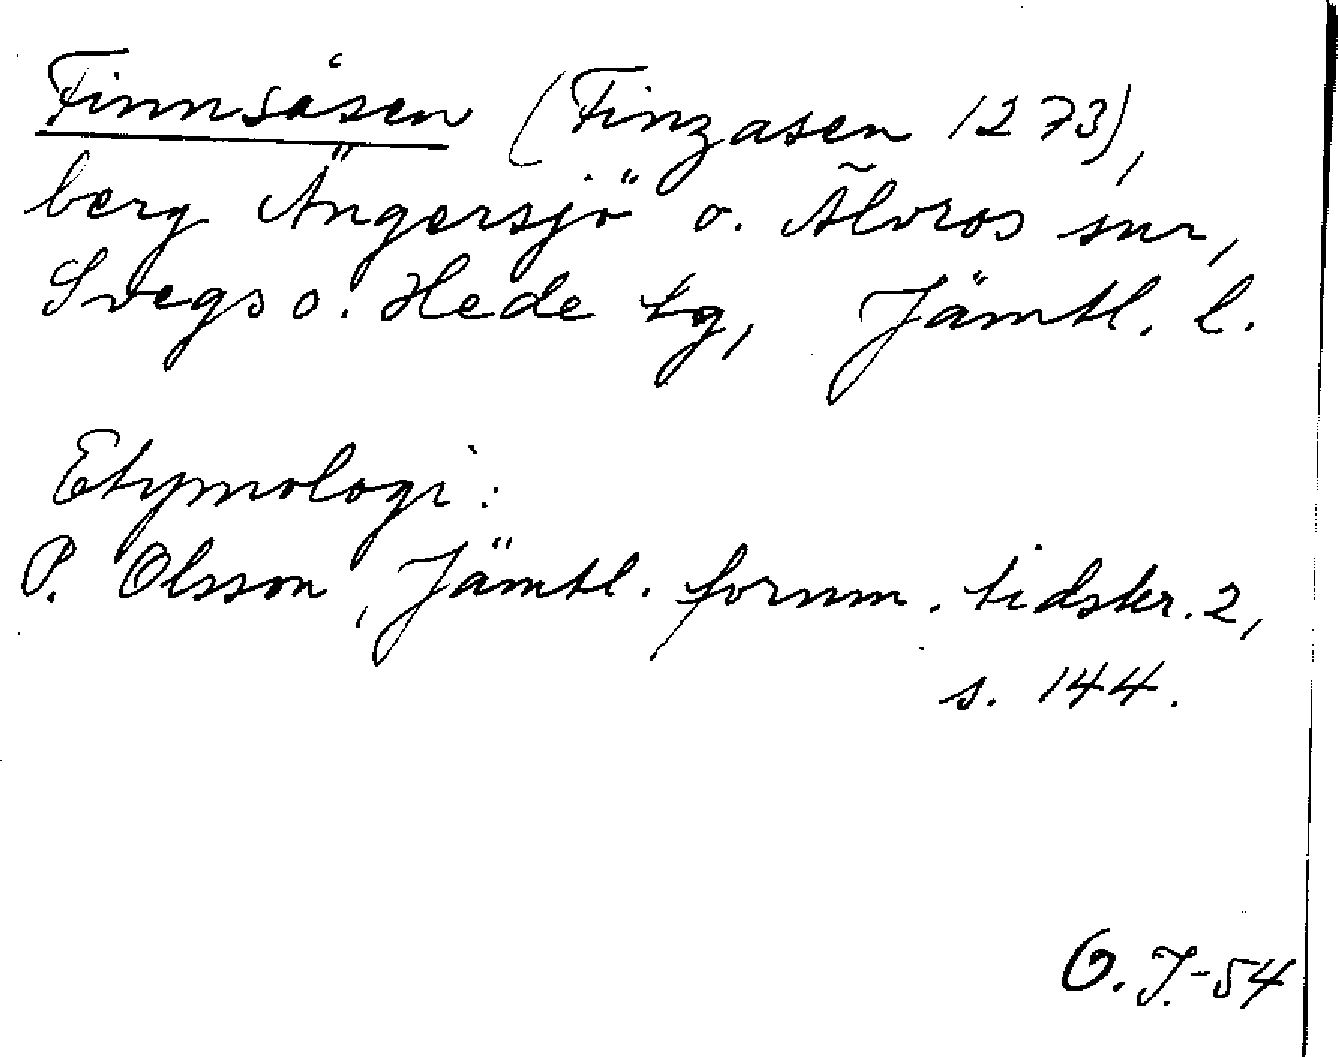 Finnsåsen (Finzasen 1273),
berg Ängersjö o. Älvros snr,
Svegs o. Hede tg, Jämtl. l.
Etymologi:
P. Olsson, Jämtl. fornm. tidskr. 2,
s. 144.
O. J.-54